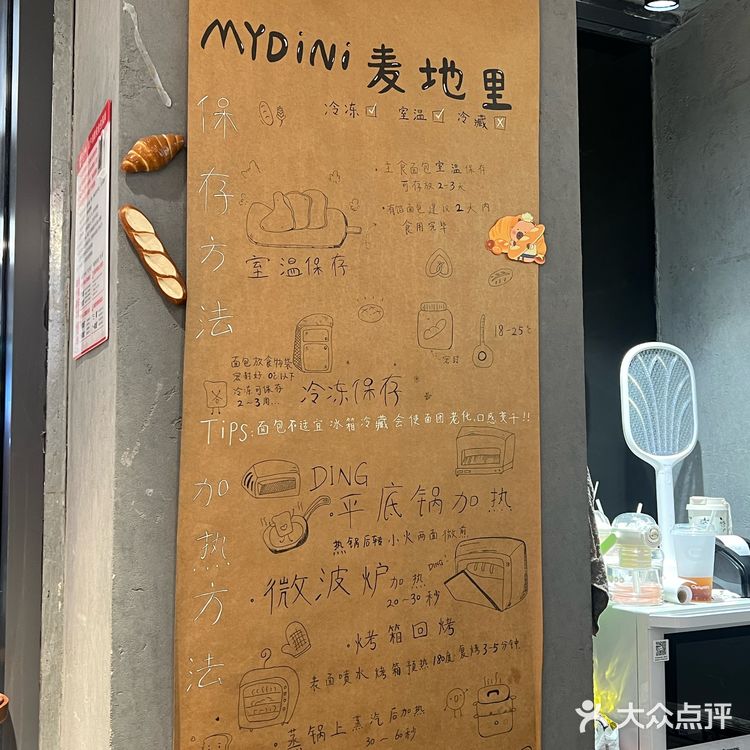 MYDINI 麦地里
冷冻 室温 冷藏
保存方法
·主食面包室温保存
可存放2~3天
·有馅面包建议2天内
食用完毕
室温保存
18-25℃
密封
面包放食物袋
密封好 0℃以下
冷冻可保存
2~3周...
冷冻保存
Tips:面包不适宜冰箱冷藏会使面团老化,口感变干!!
加热方法
DING
平底锅加热
热锅后转小火两面微煎
·微波炉加热
20~30秒
DING
·烤箱回烤
表面喷水烤箱预热180度复烤3-5分钟.
·蒸锅上蒸汽后加热
30~60秒
大众点评